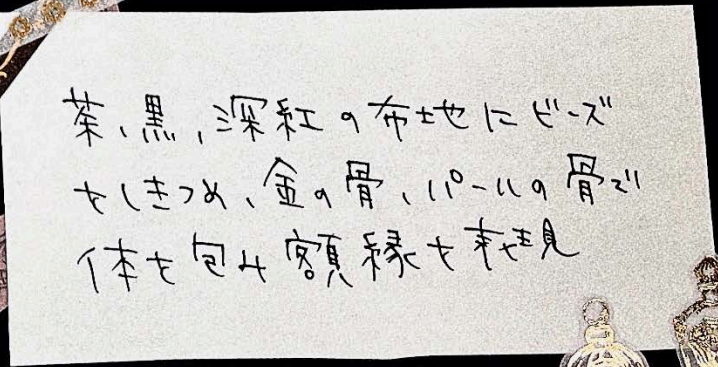 茶、黒、深紅の布地にビーズ
をしきつめ、金の骨、パールの骨で
体を包み額縁を表現